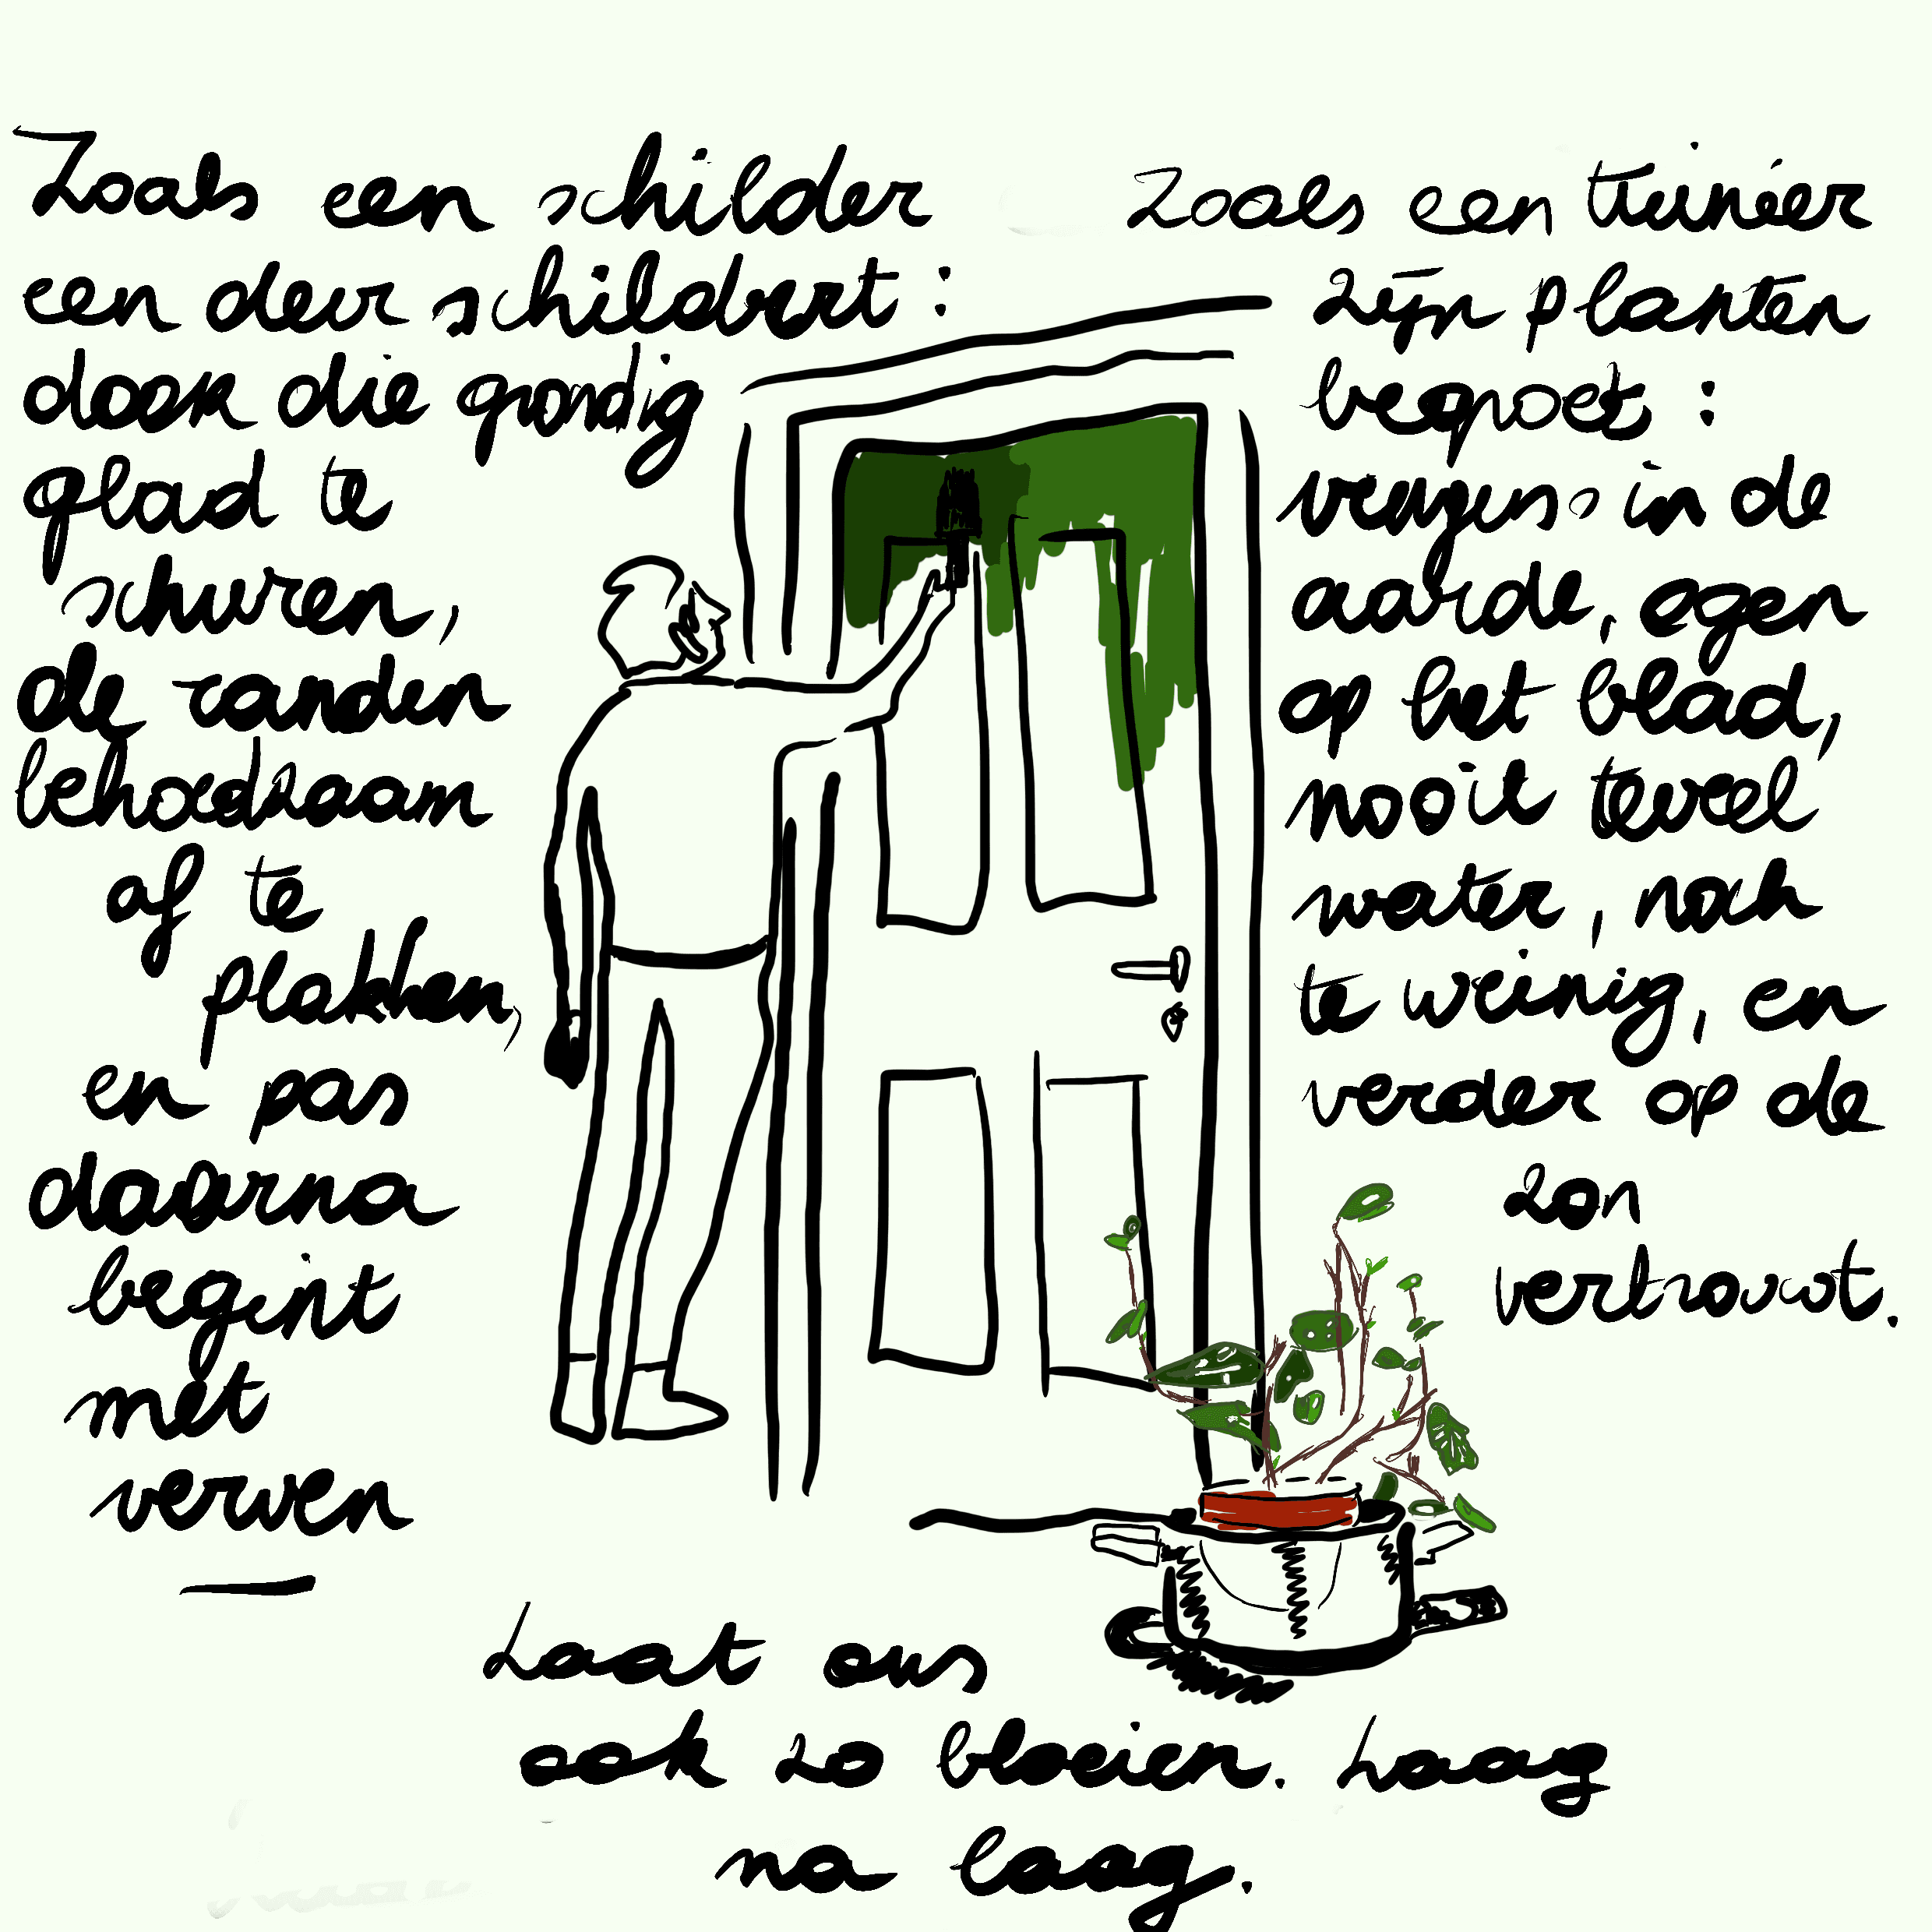 Zoals een schilder
een deur schildert:
door die grondig
glad te
schuren,
de randen
behoedzaam
af te
plakken,
en pas
daarna
begint
met
verven
—
Zoals een tuinier
zijn planten
begroet:
vingers in de
aarde, ogen
op het blad,
nooit teveel
water, noch
te weinig, en
verder op de
zon
vertrouwt.
Laat ons
ook zo bloeien. Laag
na laag.